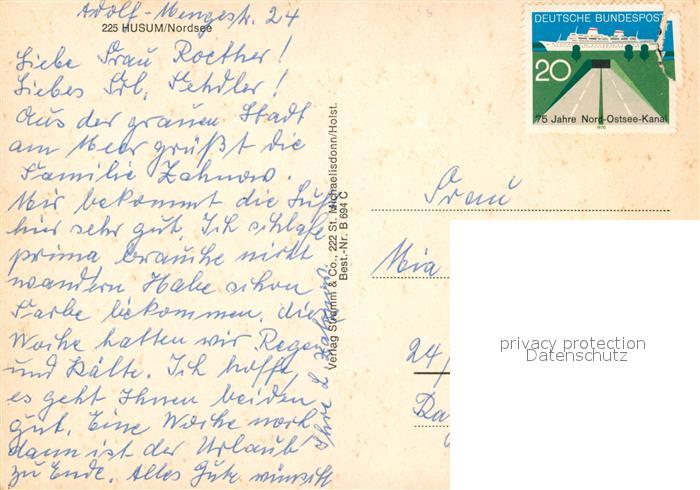 Adolf-Mengestr. 24
225 HUSUM/Nordsee
Liebe Frau Roether!
Liebes Frl.
Aus der grauen Stadt
am Meer grüßt die
Familie Zahnow.
Mir bekommt die Luft
hier sehr gut. Ich schlafe
prima brauche nicht
wandern Habe schon
Farbe bekommen. diese
Woche hatten wir Regen
und Kälte. Ich hoffe,
es geht Ihnen beiden
gut. Eine Woche noch
dann ist der Urlaub
zu Ende. Alles Gute wünscht
Ihre
Verlag Stramm & Co., 222 St. Michaelisdonn/Holst.
Best.-Nr. B 694 C
DEUTSCHE BUNDESPOST
20
75 Jahre Nord-Ostsee-Kanal
1970
Frau
Mia
24/
privacy protection
Datenschutz